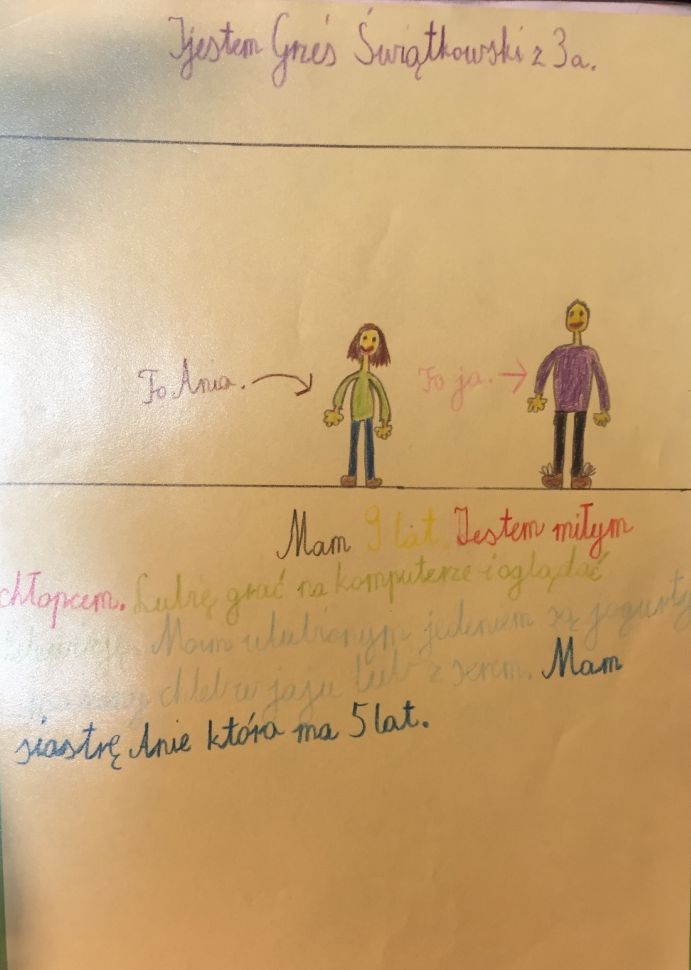 Jjestem Grześ Świątkowski z 3a.
To Ania.
To ja.
Mam 9 lat. Jestem miłym
chłopcem. Lubię grać na komputerze i oglądać
Moim ulubionym jedeniem są jogurty
chleb w jaju lub z serem. Mam
siastrę Anie która ma 5 lat.